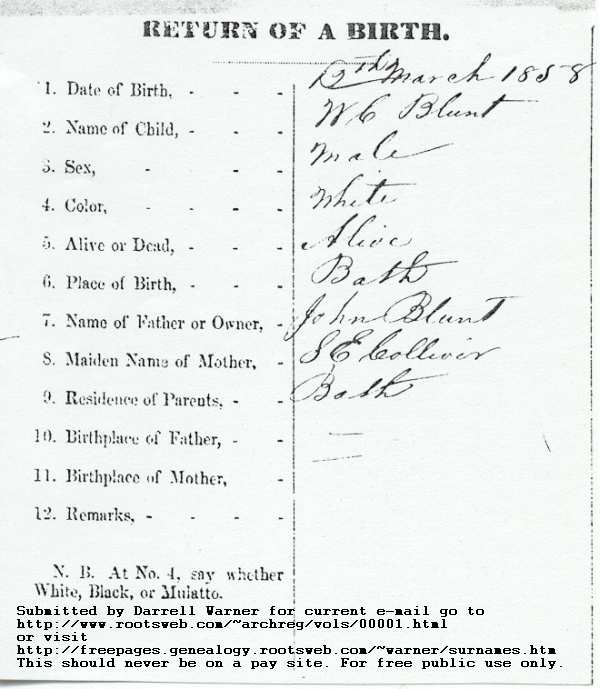 RETURN OF A BIRTH.
1. Date of Birth, - - - 12th March 1858
2. Name of Child, - - - W C Blunt
3. Sex, - - - Male
4. Color, - - - White
5. Alive or Dead, - - - Alive
6. Place of Birth, - - - Bath
7. Name of Father or Owner, - John Blunt
8. Maiden Name of Mother, - S E Colliver
9. Residence of Parents, - - Bath
10. Birthplace of Father, - -
11. Birthplace of Mother, -
12. Remarks, - - - -
N. B. At No. 4, say whether
White, Black, or Mulatto.
Submitted by Darrell Warner for current e-mail go to
http://www.rootsweb.com/~archreg/vols/00001.html
or visit
http://freepages.genealogy.rootsweb.com/~warner/surnames.htm
This should never be on a pay site. For free public use only.